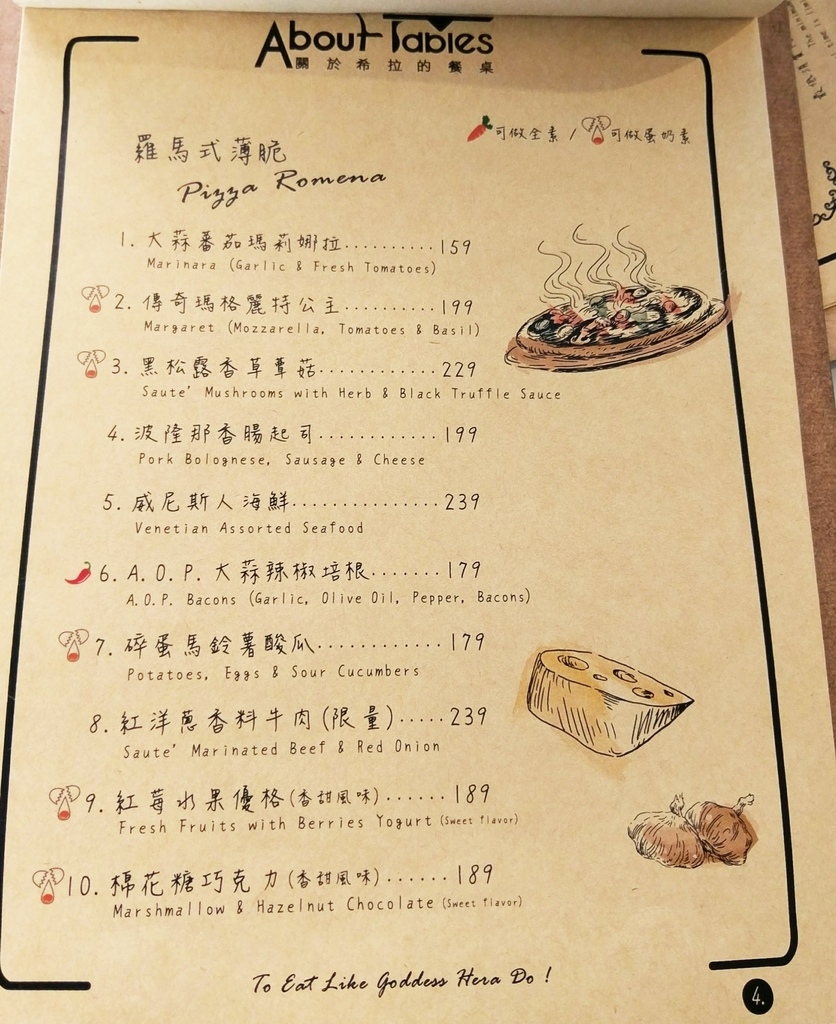 About Tables
關於希拉的餐桌
可做全素 / 可做蛋奶素
羅馬式薄脆
Pizza Romena
1. 大蒜蕃茄瑪莉娜拉..........159
Marinara (Garlic & Fresh Tomatoes)
2. 傳奇瑪格麗特公主..........199
Margaret (Mozzarella, Tomatoes & Basil)
3. 黑松露香草蕈菇............229
Saute' Mushrooms with Herb & Black Truffle Sauce
4. 波隆那香腸起司............199
Pork Bolognese, Sausage & Cheese
5. 威尼斯人海鮮...............239
Venetian Assorted Seafood
6. A.O.P. 大蒜辣椒培根.......179
A.O.P. Bacons (Garlic, Olive Oil, Pepper, Bacons)
7. 碎蛋馬鈴薯酸瓜............179
Potatoes, Eggs & Sour Cucumbers
8. 紅洋蔥香料牛肉(限量).....239
Saute' Marinated Beef & Red Onion
9. 紅莓水果優格(香甜風味)......189
Fresh Fruits with Berries Yogurt (Sweet flavor)
10. 棉花糖巧克力(香甜風味)......189
Marshmallow & Hazelnut Chocolate (Sweet flavor)
To Eat Like Goddess Hera Do !
4.